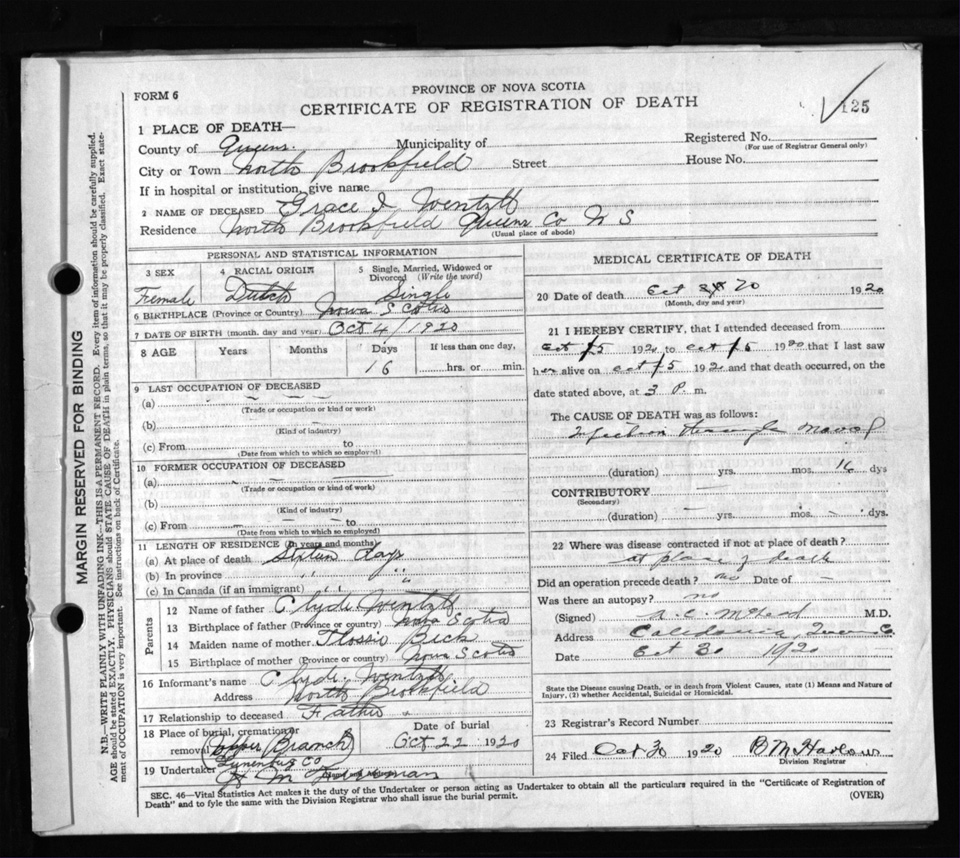 FORM 6
PROVINCE OF NOVA SCOTIA
CERTIFICATE OF REGISTRATION OF DEATH
125
1 PLACE OF DEATH—
County of Queens. Municipality of
Registered No.
(For use of Registrar General only)
City or Town North Brookfield Street House No.
If in hospital or institution, give name
2 NAME OF DECEASED Grace I Wentzell
Residence North Brookfield Queens Co N S
(Usual place of abode)
PERSONAL AND STATISTICAL INFORMATION
3 SEX 4 RACIAL ORIGIN 5 Single, Married, Widowed or Divorced (Write the word)
Female Dutch Single
6 BIRTHPLACE (Province or Country) Nova Scotia
7 DATE OF BIRTH (month, day and year) Oct 4/1920
8 AGE Years Months Days If less than one day,
16 hrs. or min.
9 LAST OCCUPATION OF DECEASED
(a) — — —
(Trade or occupation or kind or work)
(b) —
(Kind of industry)
(c) From to
(Date from which to which so employed)
10 FORMER OCCUPATION OF DECEASED
(a) - — -
(Trade or occupation or kind of work)
(b)
(Kind of industry)
(c) From — — to —
(Date from which to which so employed)
11 LENGTH OF RESIDENCE (In years and months)
(a) At place of death Sixteen days
(b) In province " "
(c) In Canada (if an immigrant) " "
Parents
12 Name of father Clyde Wentzell
13 Birthplace of father (Province or country) Nova Scotia
14 Maiden name of mother Flossie
15 Birthplace of mother (Province or country) Nova Scotia
16 Informant's name Clyde Wentzell
Address North Brookfield
17 Relationship to deceased Father
18 Place of burial, cremation or removal Upper Branch
Lunenburg Co
Date of burial
Oct 22 1920
19 Undertaker
MEDICAL CERTIFICATE OF DEATH
20 Date of death Oct 20 1920
(Month, day and year)
21 I HEREBY CERTIFY, that I attended deceased from
Oct 15 1920 to Oct 15 1920 that I last saw
her alive on Oct 15 1920 and that death occurred, on the
date stated above, at 3 P. m.
The CAUSE OF DEATH was as follows:
Infection through
(duration) yrs. mos. 16 dys
CONTRIBUTORY —
(Secondary)
(duration) — yrs. mos. — dys.
22 Where was disease contracted if not at place of death?
at place of death
Did an operation precede death? no Date of —
Was there an autopsy? no
(Signed) M.D.
Address Caledonia, Queens Co.
Date Oct 20 1920
State the Disease causing Death, or in death from Violent Causes, state (1) Means and Nature of
Injury, (2) whether Accidental, Suicidal or Homicidal.
23 Registrar's Record Number
24 Filed Oct 30 1920 B M Harlow
Division Registrar
SEC. 46—Vital Statistics Act makes it the duty of the Undertaker or person acting as Undertaker to obtain all the particulars required in the "Certificate of Registration of
Death" and to fyle the same with the Division Registrar who shall issue the burial permit.
(OVER)
MARGIN RESERVED FOR BINDING
N.B.—WRITE PLAINLY WITH UNFADING INK—THIS IS A PERMANENT RECORD. Every item of information should be carefully supplied.
AGE should be stated EXACTLY. PHYSICIANS should STATE CAUSE OF DEATH in plain terms, so that it may be properly classified. Exact state-
ment of OCCUPATION is very important. See instructions on back of Certificate.